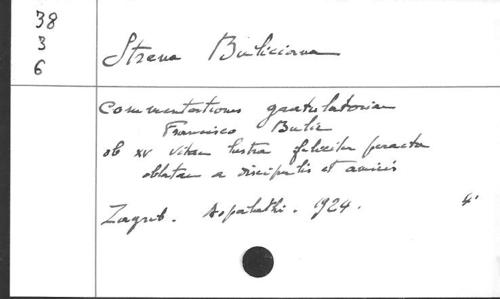 38
3
6
Strena Buliciana
Commentationes gratulatoriae
Francisco Bulic
ob XV vitae lustra feliciter peracta
oblatae a discipulis et amicis
Zagreb. Aspalathi. 1924. 4°